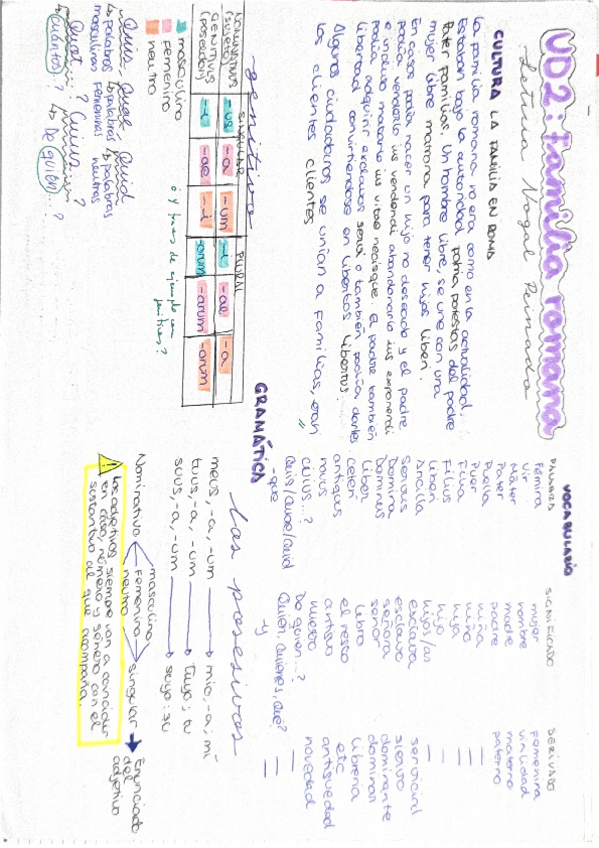 UD2: familia romana
Leticia Nogal Peinado
CULTURA LA FAMILIA EN ROMA
La familia romana no era como en la actualidad.
Estaban bajo la autoridad patria potestas del padre
Pater familias. Un hombre libre, se une con una
mujer libre matrona para tener hijos liberi.
En casos podía nacer un hijo no deseado y el padre
podía venderlo ius vendendi abandonarlo ius exponendi
e incluso matarlo ius vitae necisque. El padre también
podía adquirir esclavos servi o también podía darles
libertad convirtiendose en libertos libertus.
Algunos ciudadanos se unían a familias, eran
los clientes clientes
VOCABULARIO
PALABRA SIGNIFICADO DERIVADO
Fémina mujer femenina
Vir hombre virilidad
Máter madre materno
Pater padre paterno
Puella niña —
Puer niño —
Filia hija —
Filius hijo —
Liberi hijos/as —
Ancilla esclava
Servus esclavo siervo
Domina señora dominante
Dominus señor dominar
Liber libro librería
ceteri el resto etc
antiquus antiguo antiguedad
novus nuevo novedad
cuius...? De quien...? —
Quis/Quae/Quid Quién, Quienes, Qué? —
-que y —
GRAMÁTICA
genitivo
SINGULAR PLURAL
NOMINATIVUS (sujeto) -us -a -um -i -ae -a
GENITIVUS (poseedor) -i -ae -i -orum -arum -orum
masculino
femenino
neutro
ó y tras de ejemplo con
Quis, Quae, Quid
palabras palabras palabras
masculinas femeninas neutras
Quot...? Cuius...?
cuántos? De quién...?
Los posesivos
meus, -a, -um mio, -a; mi
tuus, -a, -um Tuyo; tu
suus, -a, -um suyo; su
masculino
Nominativo femenino singular Enunciado
neutro del
adjetivo
Los adjetivos siempre van a coincidir
en caso, número y género con el
sustantivo al que acompaña.